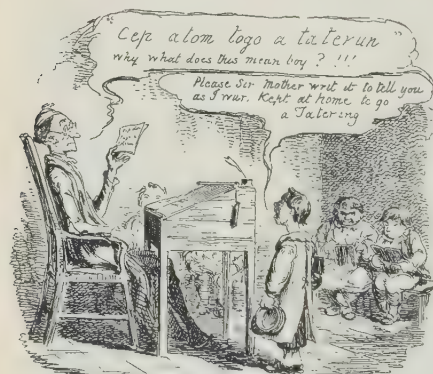 "Cep atom togo a taterun"
why what does this mean boy ? !!!
Please Sir Mother writ it to tell you
as I wur. Kept at home to go
a Tatering